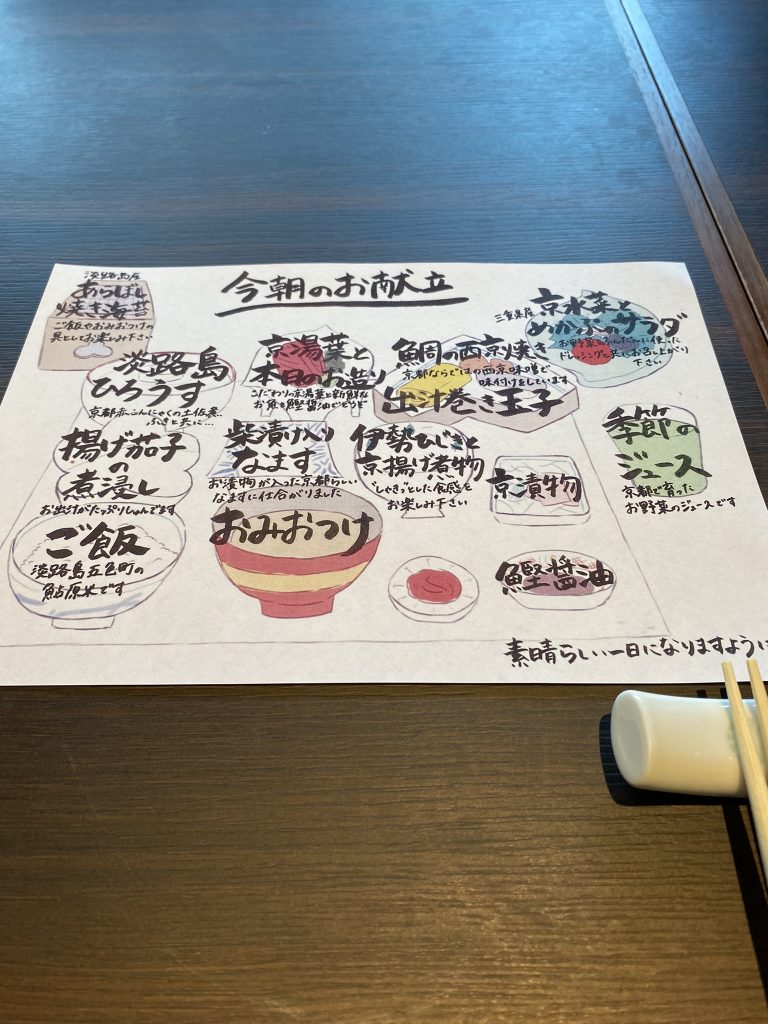 今朝のお献立
淡路島産
あらばし
焼き海苔
ご飯やおみおつけの
具としてお楽しみ下さい
淡路島
ひろうす
京都赤こんにゃくの土佐煮、
ふきと共に…
京湯葉と
本日のお造り
こだわりの京湯葉と新鮮な
お魚を鰹醤油でどうぞ
鯛の西京焼き
京都ならではの西京味噌で
味付けをしています
出汁巻き玉子
三重県産
京水菜と
めかぶのサラダ
お野菜をふんだんに使った
ドレッシングと共にお召し上がり
下さい
揚げ茄子
の
煮浸し
お出汁がたっぷりしゅんでます
柴漬け入り
なます
お漬物が入った京都らしい
なますに仕上がりました
伊勢ひじきと
京揚げ煮物
"しゃきっ"とした食感を
お楽しみ下さい
京漬物
季節の
ジュース
京都で育った
お野菜のジュースです
ご飯
淡路島五色町の
鮎原米です
おみおつけ
鰹醤油
素晴らしい一日になりますように